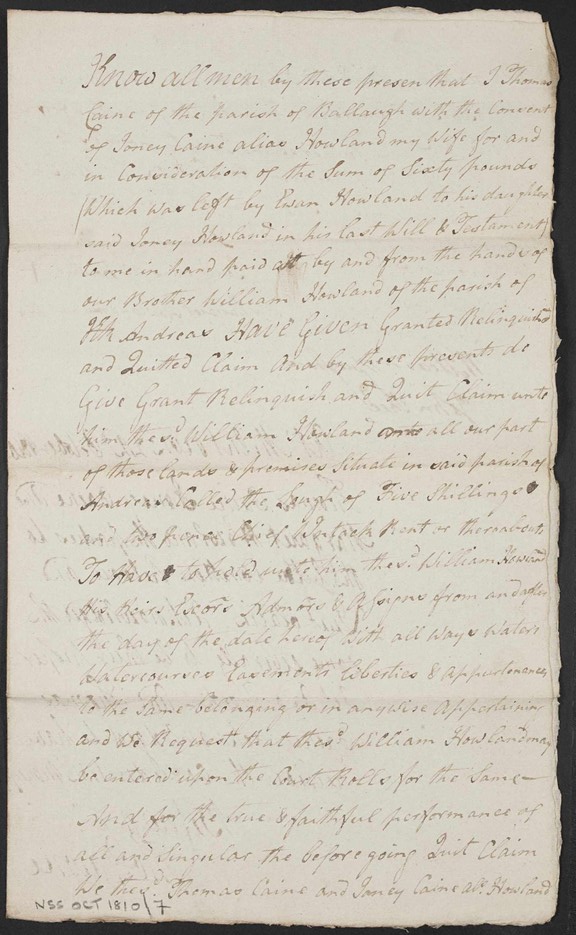 Know all men by these presen that I Thomas
Caine of the parish of Ballaugh with the Consent
of Joney Caine alias Howland my Wife for and
in Consideration of the Sum of Sixty pounds
(Which was left by Ewan Howland to his daughter
said Joney Howland in his last Will & Testament)
to me in hand paid att by and from the hands of
our Brother William Howland of the parish of
Kk Andreas Have Given Granted Relinquish'd
and Quitted Claim And by these presents do
Give Grant Relinquish and Quit Claim unto
him the sd William Howland all our part
of those lands & premises Situate in said parish of
Andreas Called the Lough of Five Shillings
and two pence Chief Intack Rent or thereabouts
To Have to hold unto him the sd William Howland
His heirs Excors Admors & Assigns from and after
the day of the date hereof With all Ways Waters
Watercourses Easments liberties & Appurtenances
to the Same belonging or in anywise Appertaining
and We Request that the sd William Howland may
be entered upon the Court Rolls for the Same—
And for the true & faithful performance of
all and Singular the before going Quit Claim
We the sd Thomas Caine and Joney Caine als Howland
NSS OCT 1810/7